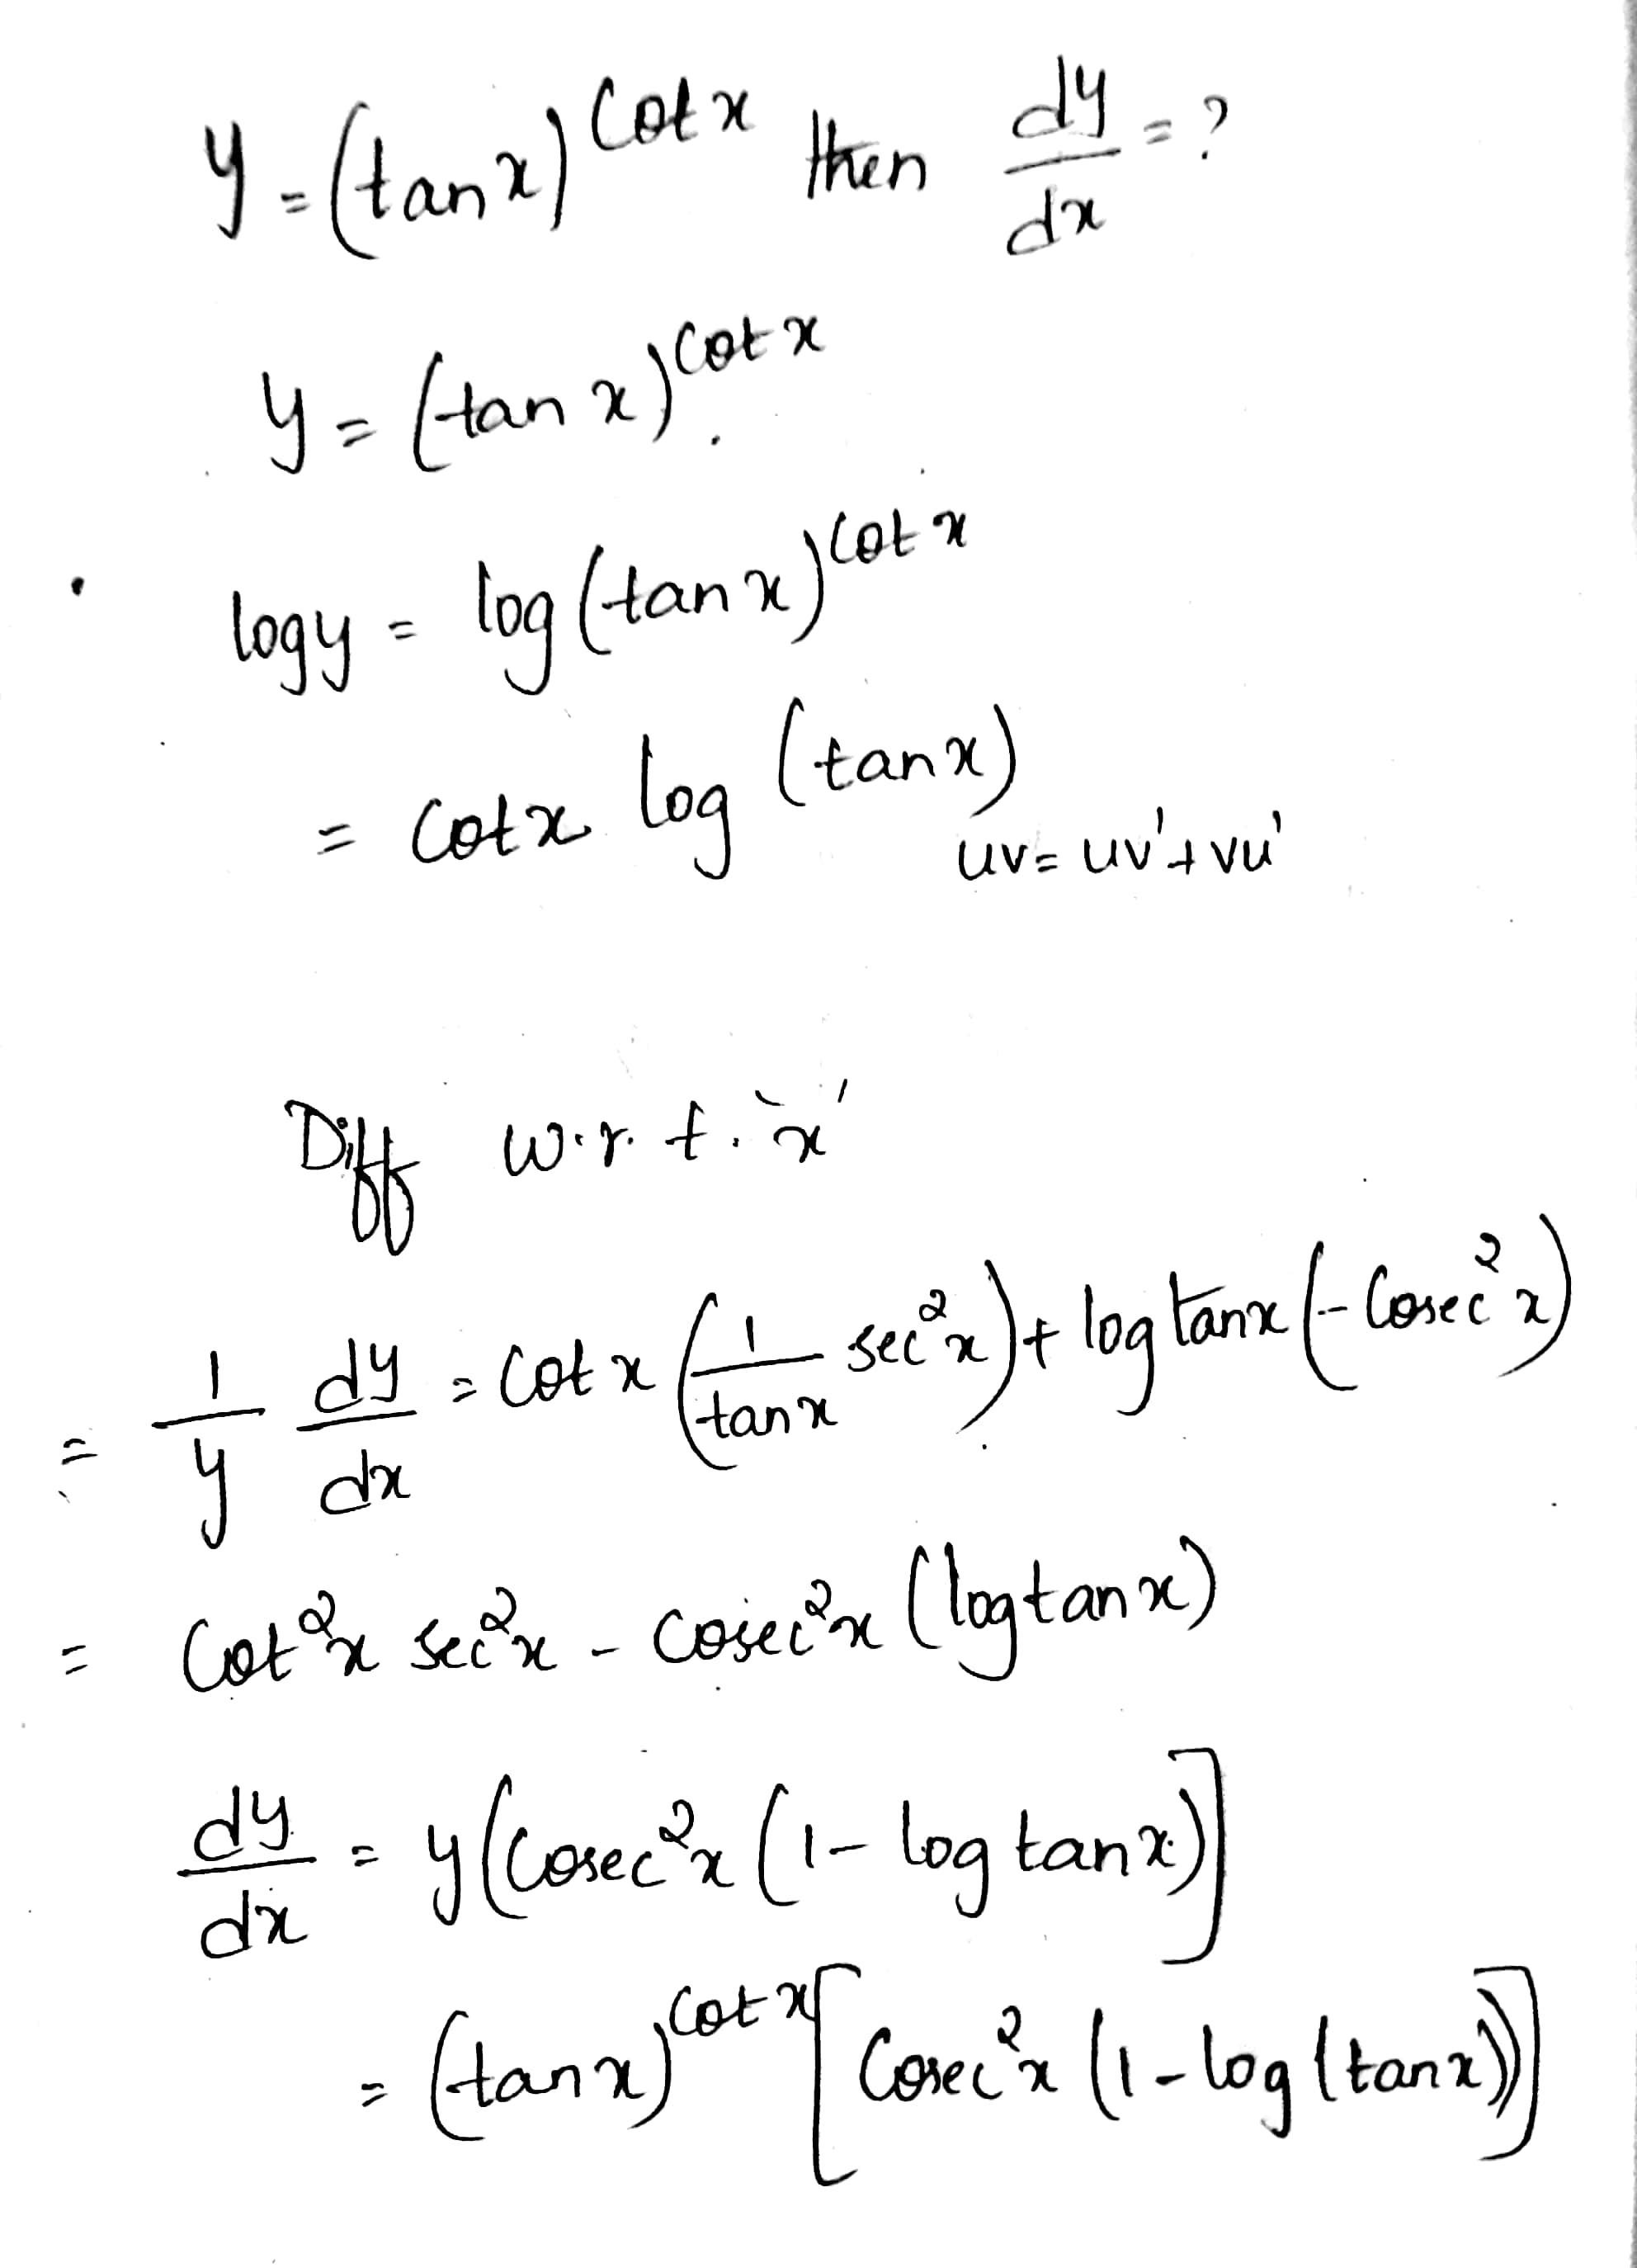 y = (tan x)^cot x then dy/dx = ?
y = (tan x)^cot x .
log y = log (tan x)^cot x
= cot x log (tan x)
uv = uv' + vu'
Diff w.r.t. 'x'
= 1/y dy/dx = cot x (1/tan x sec²x) + log tan x (- Cosec²x)
= Cot²x sec²x - cosec²x (log tan x)
dy/dx = y (Cosec²x (1 - log tan x)]
= (tan x)^cot x [Cosec²x (1 - log (tan x))]